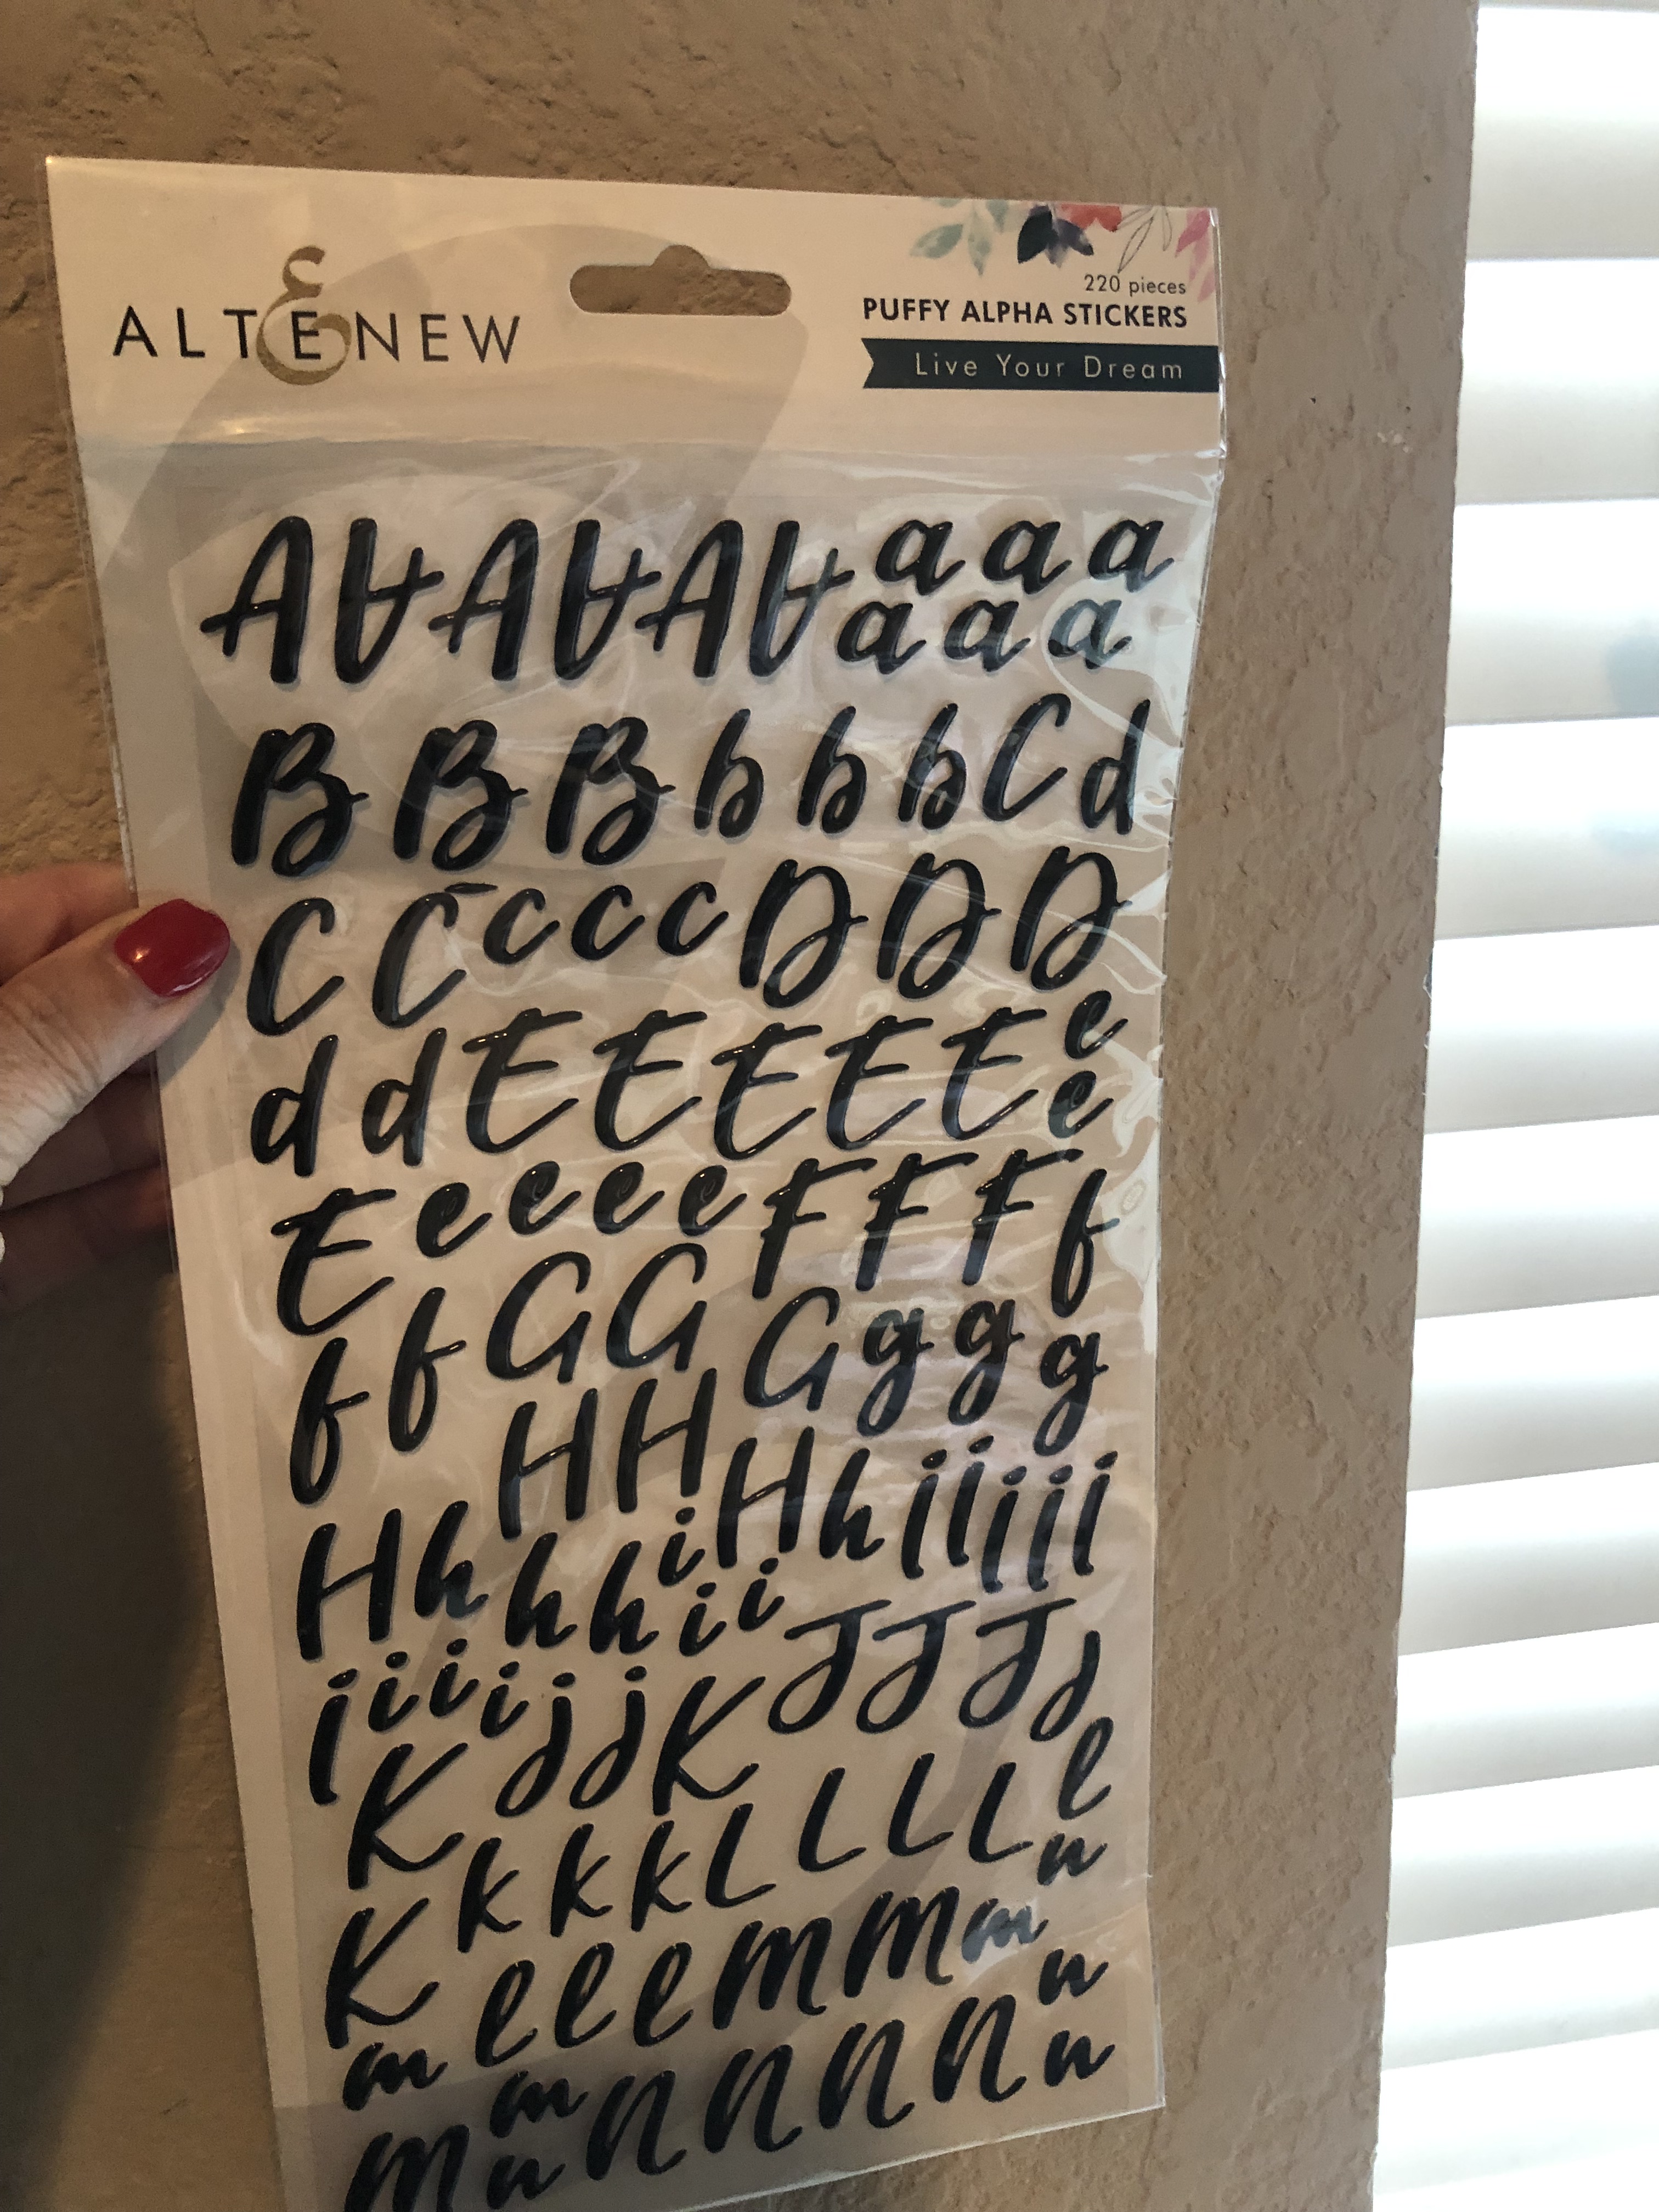 ALTENEW
220 pieces
PUFFY ALPHA STICKERS
Live Your Dream
A A A A A A a a a
a a a
B B B b b b C d
C C c c c D D D
d d E E E E E e
e
E e e e e F F F f
f f G G G g g g
H H H h I I I I I
H h h h i i i
I i i i j j K J J J j
K k k k L L L L l
K l l l M M m n
m m N N N N n
M n n